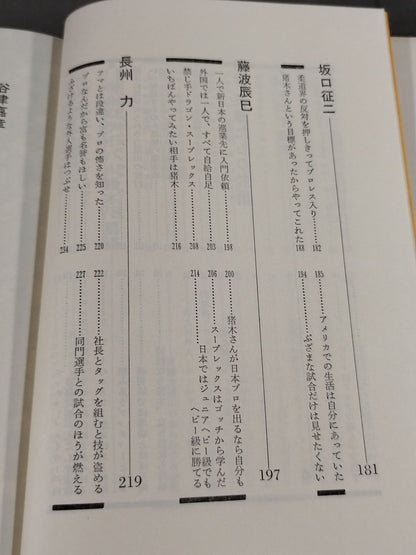 坂口征二 181
柔道界の反対を押しきってプロレス入り 182
アメリカでの生活は自分にあっていた 185
猪木さんという目標があったからやってこれた 188
ぶざまな試合だけは見せたくない 194
藤波辰巳 197
一人で新日本の巡業先に入門依頼 198
猪木さんが日本プロを出るなら自分も 200
外国では一人で、すべて自給自足 203
スープレックスはゴッチから学んだ 206
禁じ手ドラゴン・スープレックス 208
日本ではジュニアヘビー級でもヘビー級に勝てる 214
いちばんやってみたい相手は猪木 216
長州 力 219
アマとは段違い、プロの怖さを知った 220
社長とタッグを組むと技が盗める 222
プロなんだから富も名誉もほしい 225
同門選手との試合のほうが燃える 227
234
谷津嘉章